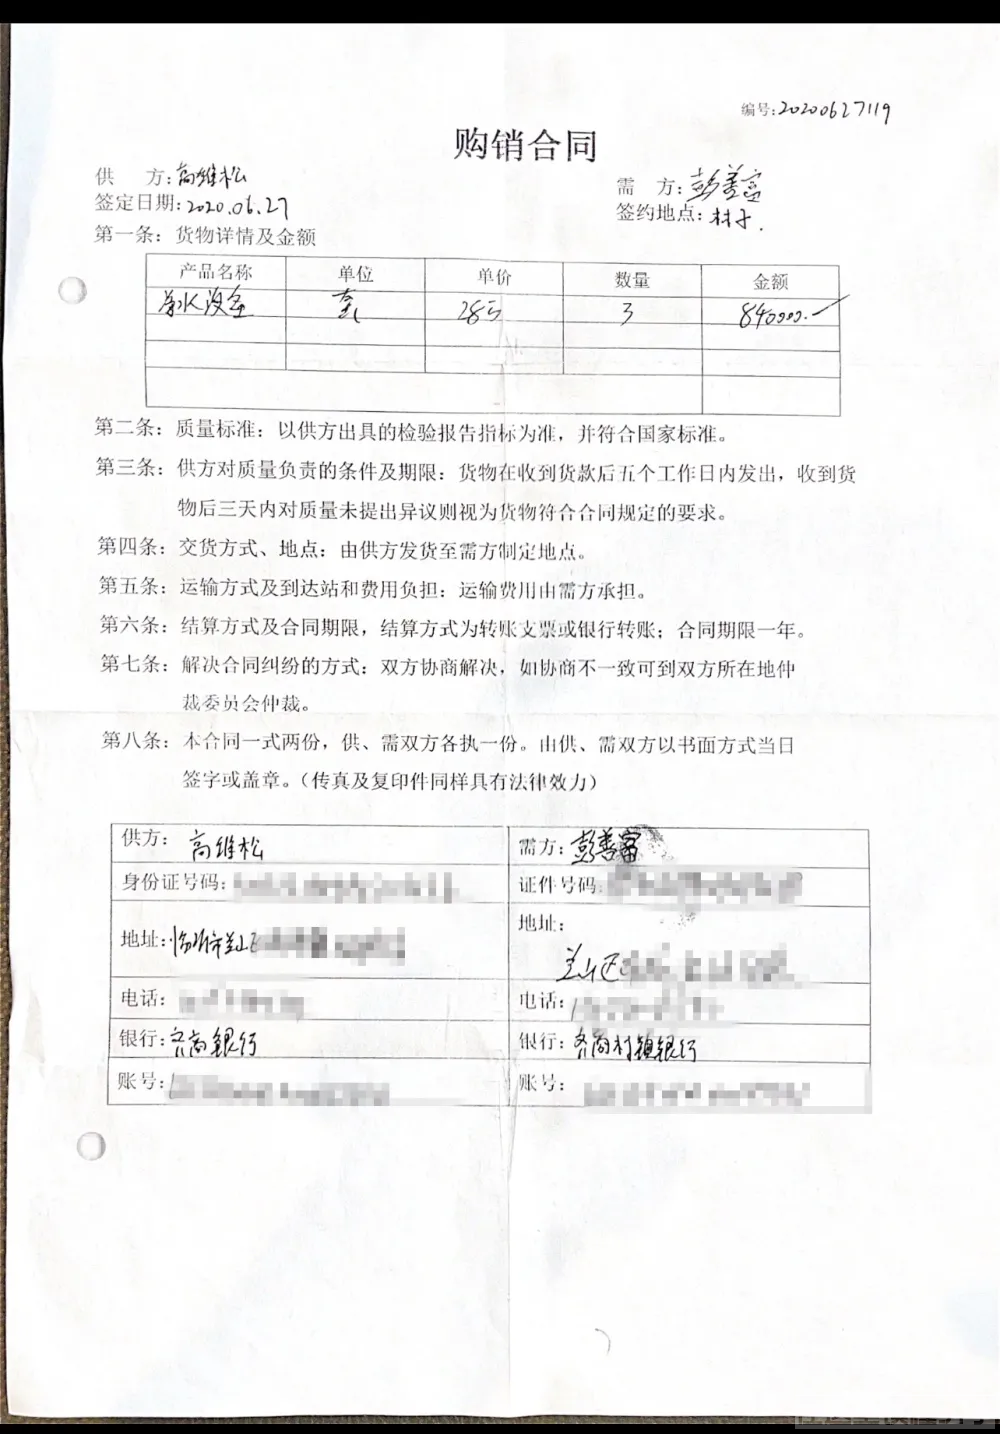 编号:20200627119
购销合同
供 方:高维松
需 方:彭善富
签定日期:2020.06.27
签约地点:村子.
第一条：货物详情及金额
产品名称 单位 单价 数量 金额
套 28万 3 840000.-
第二条：质量标准：以供方出具的检验报告指标为准，并符合国家标准。
第三条：供方对质量负责的条件及期限：货物在收到货款后五个工作日内发出，收到货
物后三天内对质量未提出异议则视为货物符合合同规定的要求。
第四条：交货方式、地点：由供方发货至需方制定地点。
第五条：运输方式及到达站和费用负担：运输费用由需方承担。
第六条：结算方式及合同期限，结算方式为转账支票或银行转账；合同期限一年。
第七条：解决合同纠纷的方式：双方协商解决，如协商不一致可到双方所在地仲
裁委员会仲裁。
第八条：本合同一式两份，供、需双方各执一份。由供、需双方以书面方式当日
签字或盖章。（传真及复印件同样具有法律效力）
供方：高维松
需方：彭善富
身份证号码：
证件号码
地址：临沂市兰山区
地址：
兰山区
电话：
电话：
银行：齐商银行
银行：齐商村镇银行
账号：
账号：